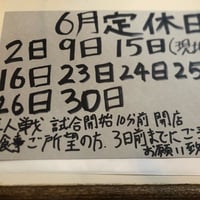 6月定休日
2日9日15日(
16日23日24日25
26日30日
人戦 試合開始10分前 開店
食事ご所望の方、3日前までにご
お願い致